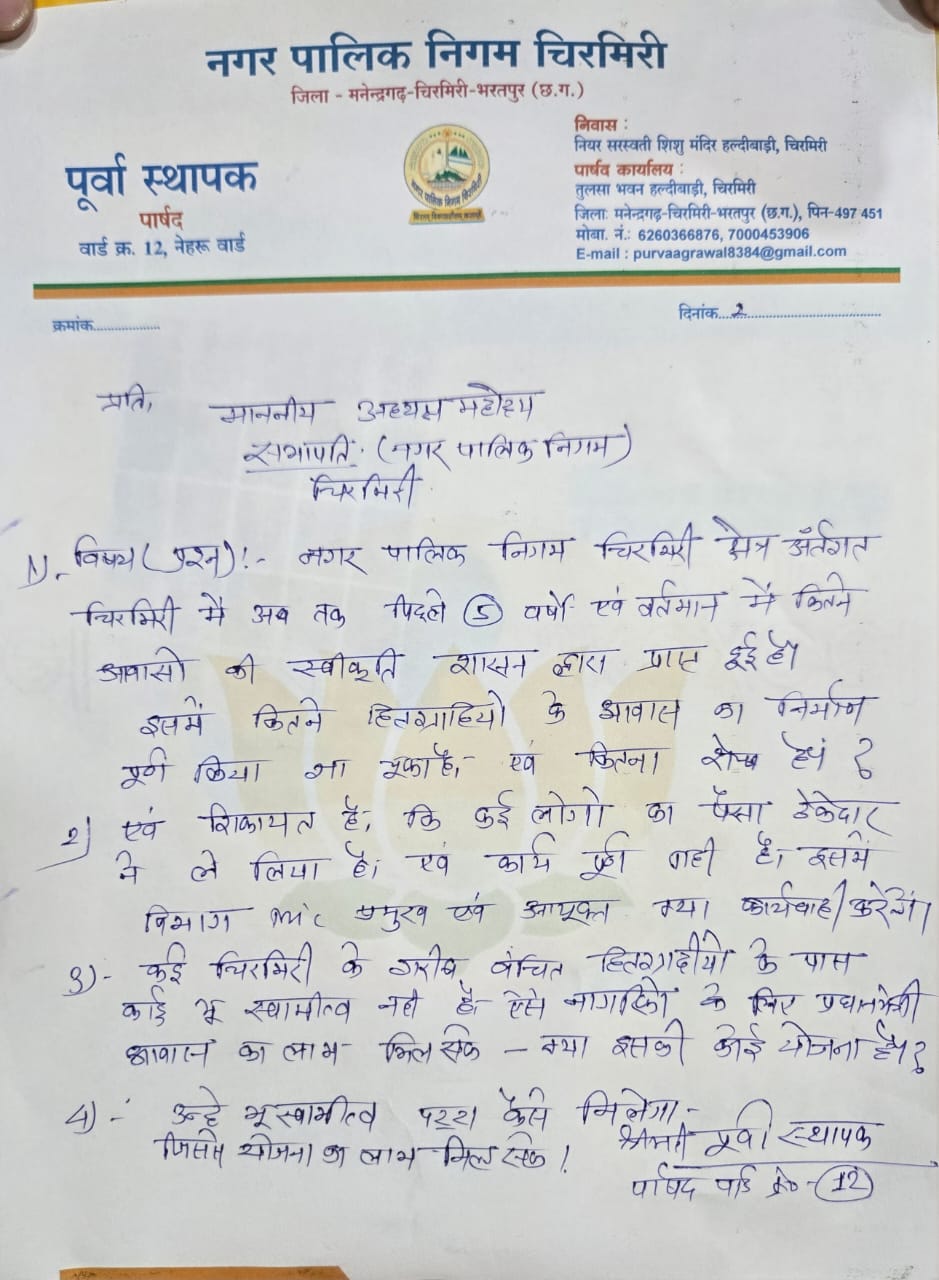 नगर पालिक निगम चिरमिरी
जिला - मनेन्द्रगढ़-चिरमिरी-भरतपुर (छ.ग.)
पूर्वा स्थापक
पार्षद
वार्ड क्र. 12, नेहरू वार्ड
नगर पालिक निगम चिरमिरी
निवास :
नियर सरस्वती शिशु मंदिर हल्दीबाड़ी, चिरमिरी
पार्षद कार्यालय :
तुलसा भवन हल्दीबाड़ी, चिरमिरी
जिला: मनेन्द्रगढ़-चिरमिरी-भरतपुर (छ.ग.), पिन-497 451
मोबा. नं.: 6260366876, 7000453906
E-mail : purvaagrawal8384@gmail.com
क्रमांक..................
दिनांक...2...................................
प्रति,
माननीय अध्यक्ष महोदय
सभापति (नगर पालिक निगम)
चिरमिरी
1). विषय (प्रश्न)!- नगर पालिक निगम चिरमिरी क्षेत्र अंर्तगत
चिरमिरी में अब तक पिछले 5 वर्षो एवं वर्तमान में कितने
आवासो की स्वीकृति शासन द्वारा प्राप्त हुई है।
इसमें कितने हितग्राहियो के आवास का निर्माण
पूर्ण किया जा चूका है, एवं कितना शेष है ?
2) एवं शिकायत है, कि कई लोगो का पैसा ठेकेदार
ने ले लिया है, एवं कार्य पूर्ण नही है, इसमें
विभाग mic प्रमुख एवं आयूक्त क्या कार्यवाही करेंगे।
3)- कई चिरमिरी के गरीब वंचित हितग्राहीयो के पास
कोई भू स्वामीत्व नही है, ऐसे नागरिको के लिए प्रधानमंत्री
आवास का लाभ मिल सके - क्या इसकी कोई योजना है ?
4) - उन्हे भूस्वामीत्व पट्टा कैसे मिलेगा -
जिससे योजना का लाभ मिल सके !
श्रीमती पूर्वा स्थापक
पार्षद वार्ड क्र०-12